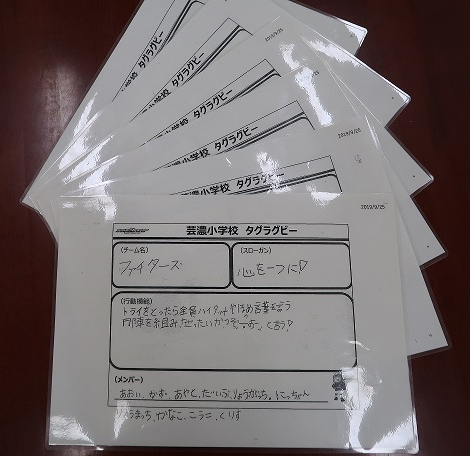 タグラグビー
タグラグビー
2019/9/25
小学校 タグラグビー
芸濃小学校 タグラグビー
2019/9/25
芸濃小学校 タグラグビー
(チーム名)
ファイターズ
(スローガン)
心を一つに♡
(行動規範)
トライをとったら全員ハイタッチやほめ言葉を言う
円陣を組み、ぜったいかつぞーおー、と言う!
(メンバー)
あおい、かず、あやと、だいぶ、りょうがっち、にっちゃん
まっち、かなこ、こうニ、くりす